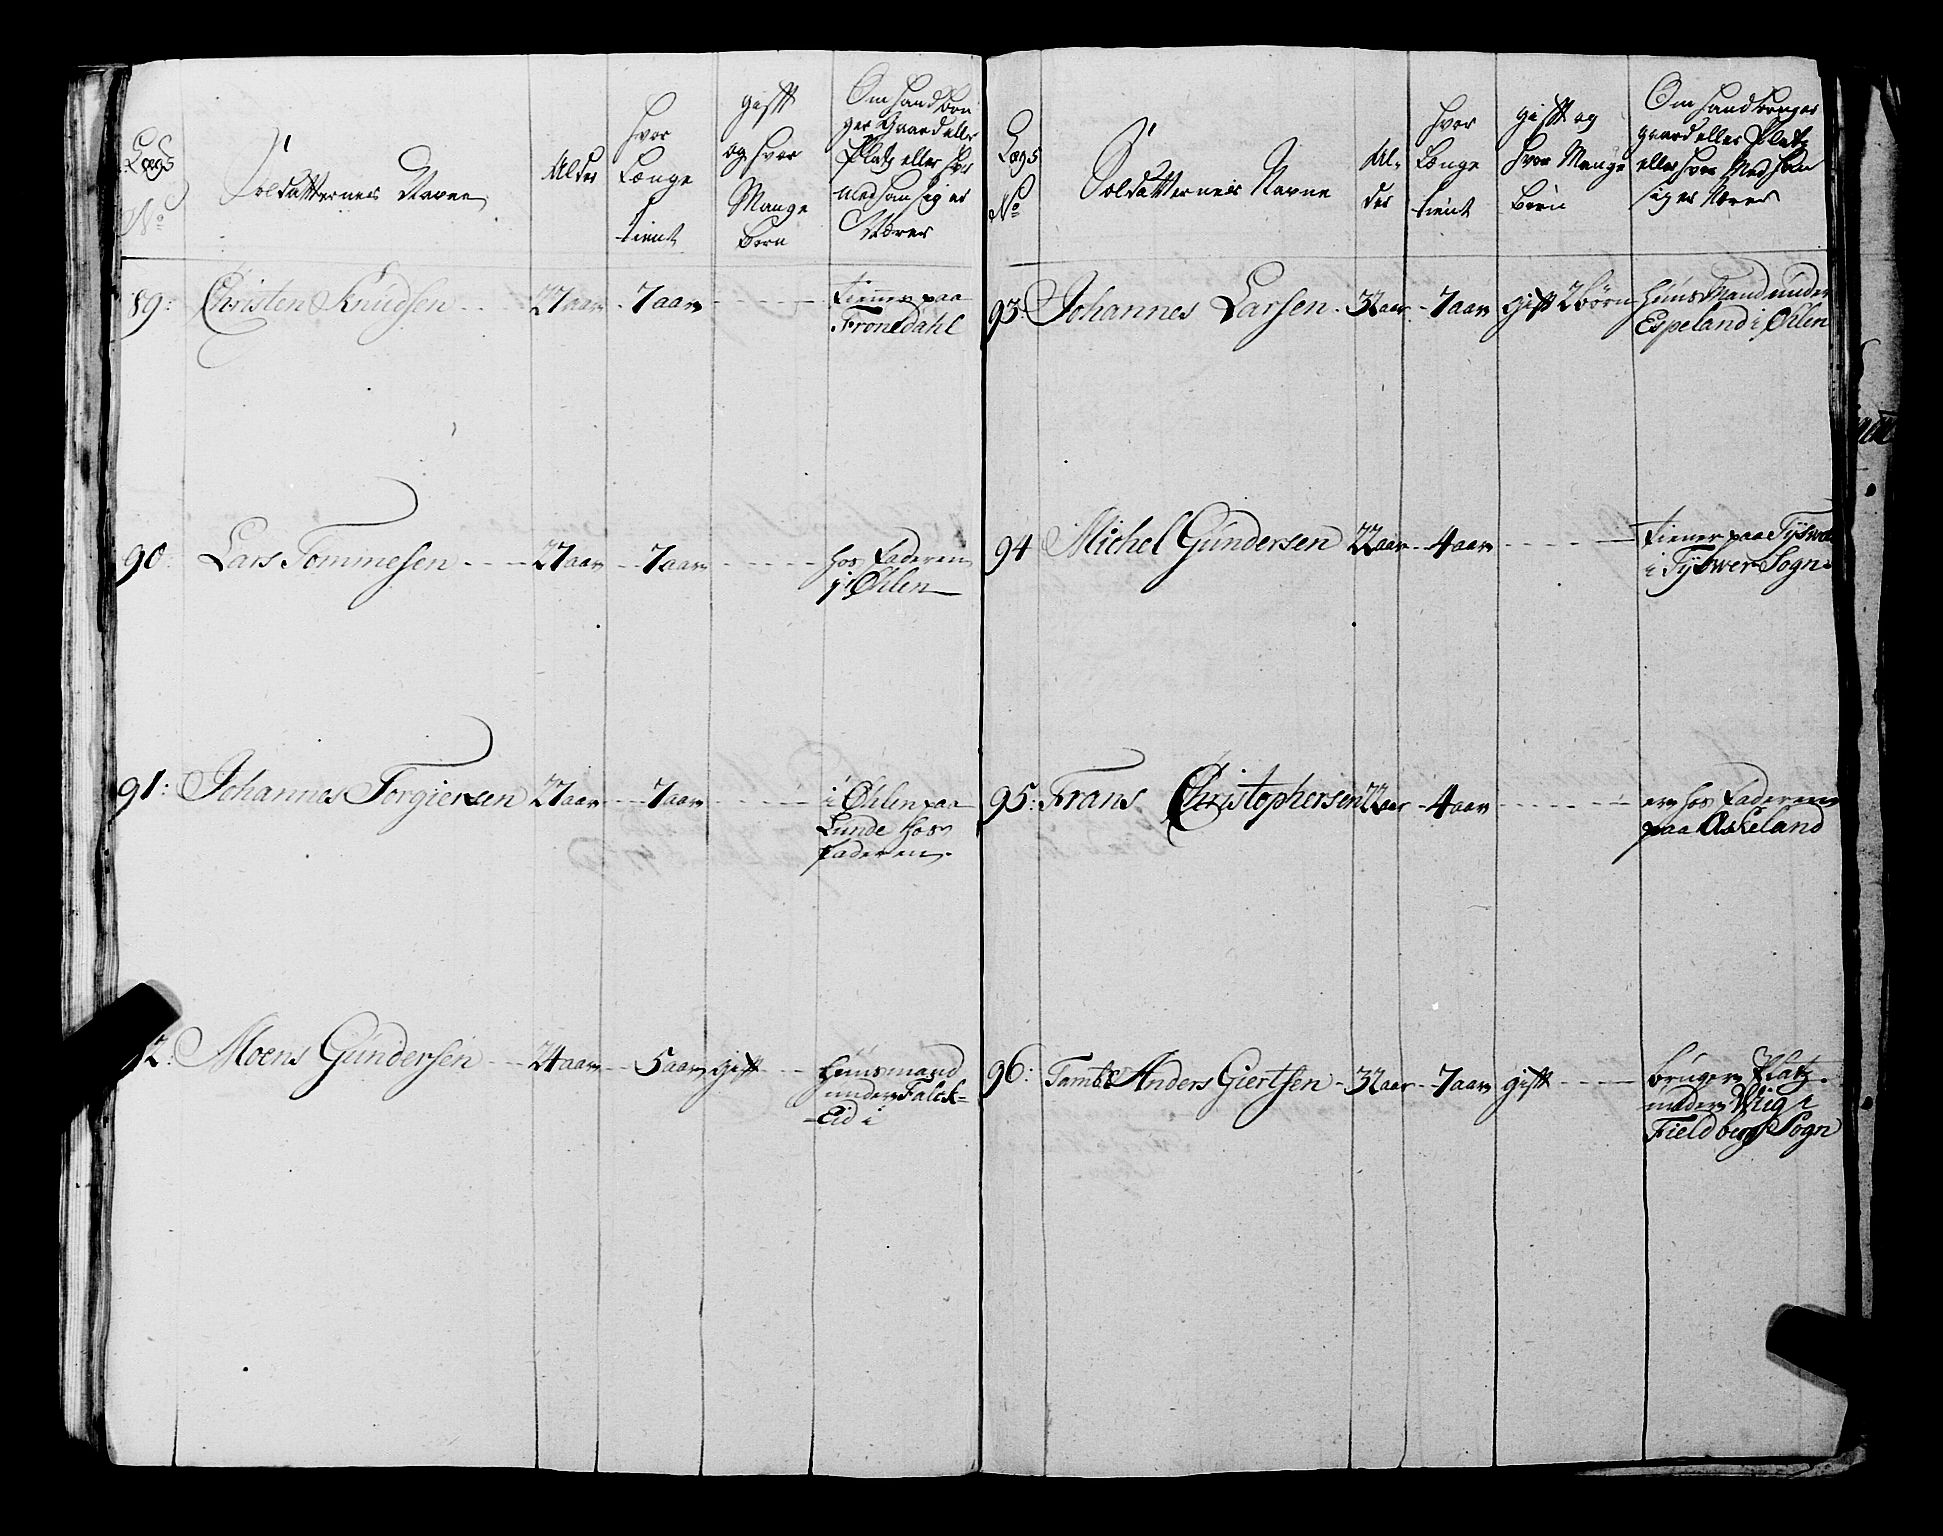 Lægs
No
Soldatternes Navne
Alder
hvor
Længe
tient
gift
og hvor
Mange
Børn
Om hand brü
ger Gaard eller
Platz eller hvor
med han sig er
Nærer
89: Christen Knudsen 27 aar 7 aar tiener paa
Frønsdahl
90: Lars Tommesen 27 aar 7 aar hos Faderen
i Øhlen
91: Johannes Torgiersen 27 aar 7 aar i Øhlen paa
Lunde hos
Faderen
2: Moens Gündersen 24 aar 5 aar gift hüusmand
under Falck-
Eid i
Lægs
No
Soldatternes Navne
Al-
der
hvor
Længe
tient
gift og
hvor Mange
Børn
Om hand brüger
gaard eller Platz
eller hvor Med han
sig er Nærer
93: Johannes Larsen 32 aar 7 aar gift 2 børn hüüs Mand under
Espeland i Øhlen
94 Michel Gündersen 22 aar 4 aar tiener paa Tÿswer
i Tÿswer Sogn
95: Frans Christophersen 22 aar 4 aar er hos Faderen
paa Askeland
96: Tamb: Anders Giertsen 32 aar 7 aar gift brüger Platz
under Wiig i
Fieldberg Sogn